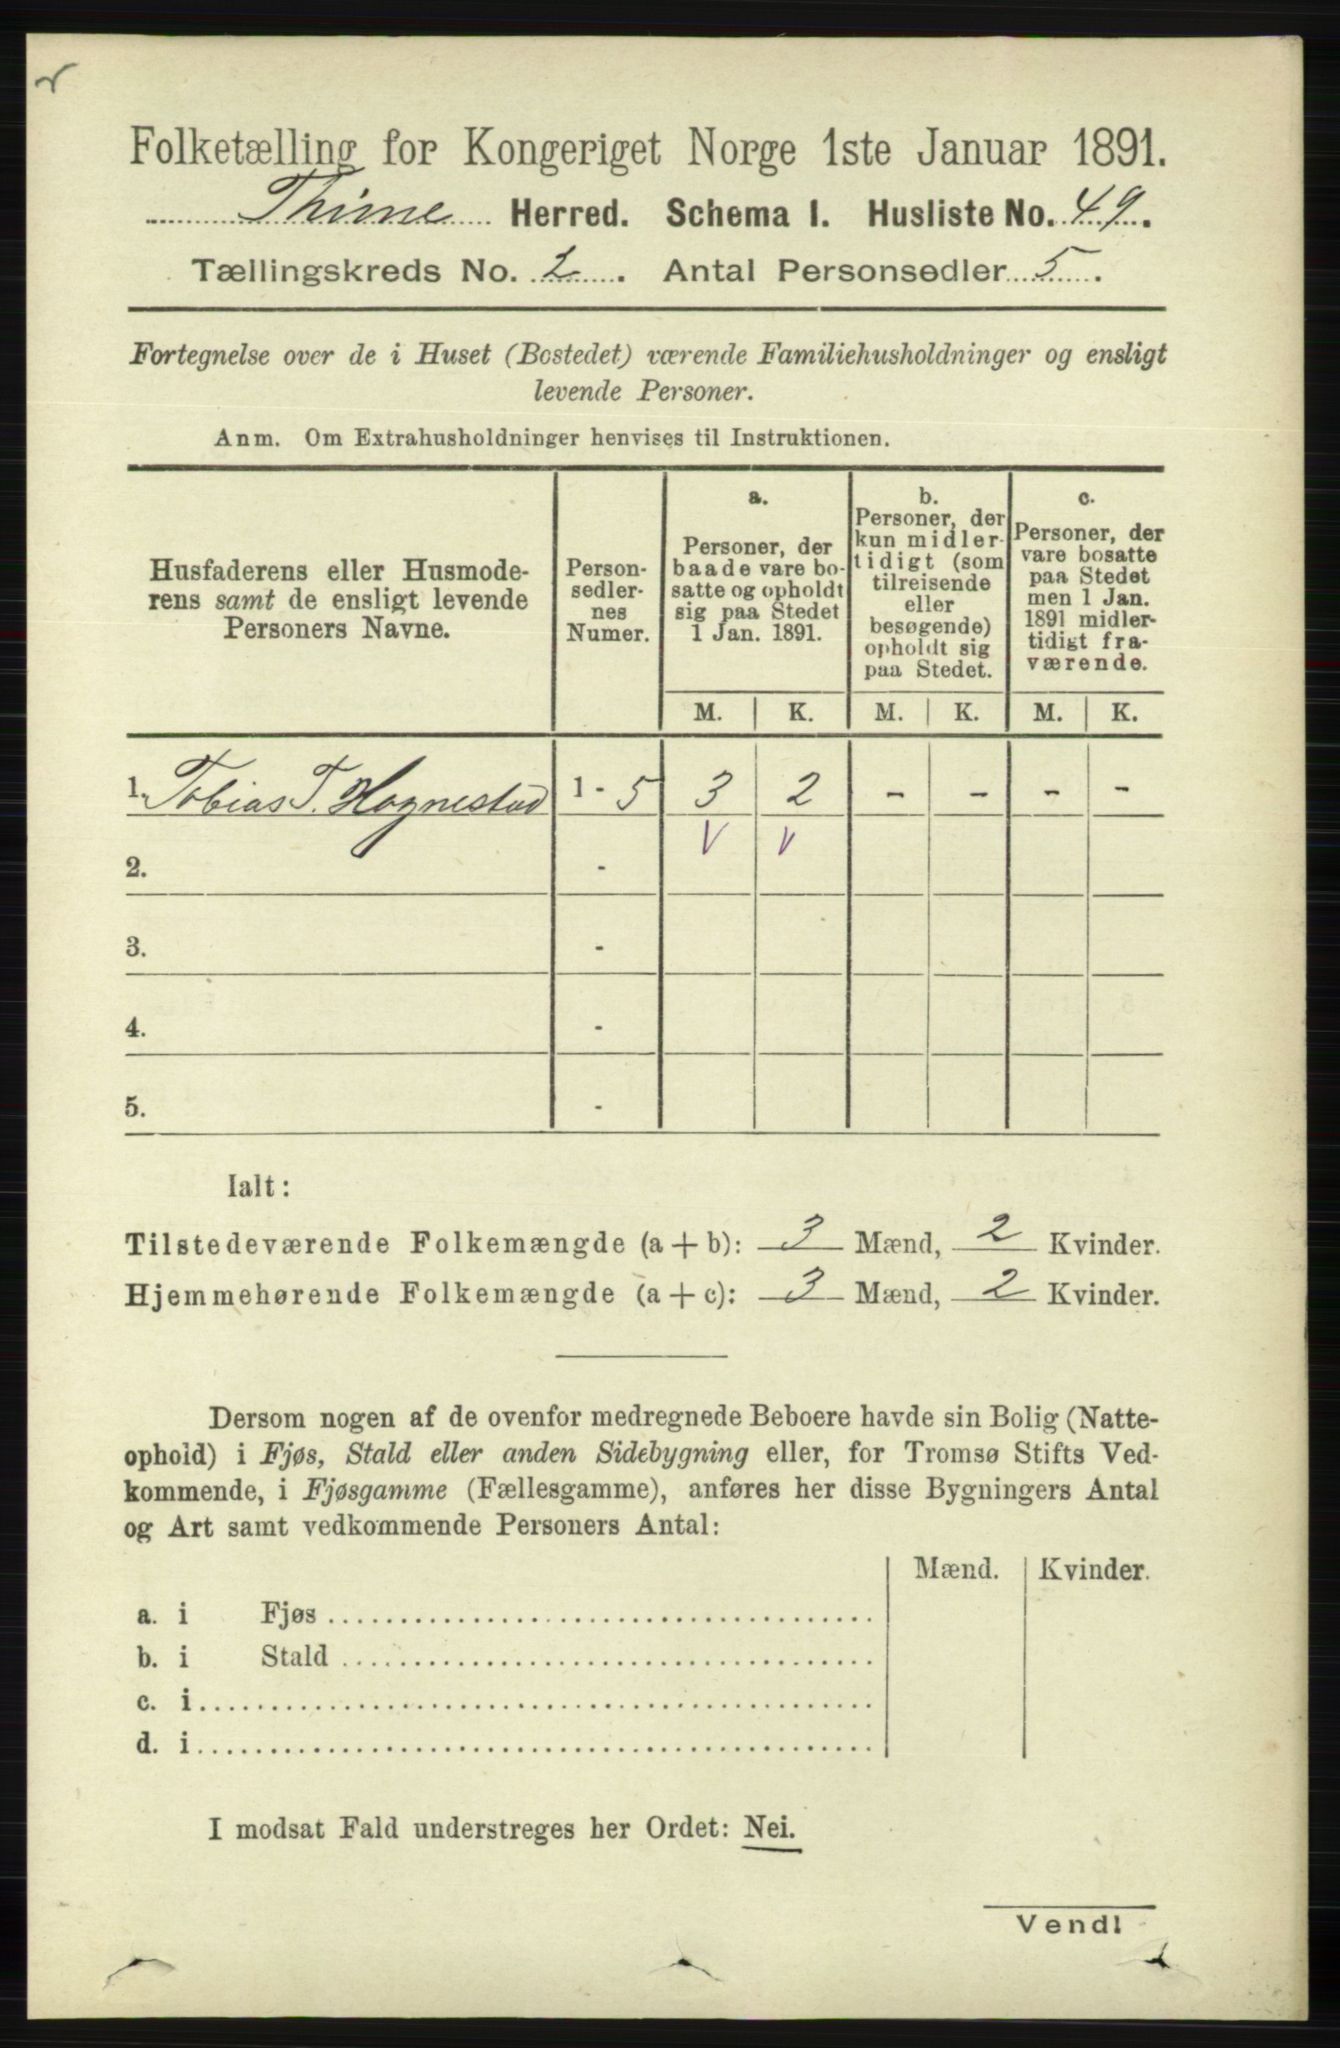 Folketælling for Kongeriget Norge 1ste Januar 1891.
Thime Herred. Schema I. Husliste No. 49.
Tællingskreds No. 2. Antal Personsedler 5.
Fortegnelse over de i Huset (Bostedet) værende Familiehusholdninger og ensligt
levende Personer.
Anm. Om Extrahusholdninger henvises til Instruktionen.
Husfaderens eller Husmode-
rens samt de ensligt levende
Personers Navne.
Person-
sedler-
nes
Numer.
a.
Personer, der
baade vare bo-
satte og opholdt
sig paa Stedet
1 Jan. 1891.
b.
Personer, der
kun midler-
tidigt (som
tilreisende
eller
besøgende)
opholdt sig
paa Stedet.
c.
Personer, der
vare bosatte
paa Stedet
men 1 Jan.
1891 midler-
tidigt fra-
værende.
M. K. M. K. M. K.
1. Tobias T. Hognestad 1 - 5 3 2 - - - -
V V
2. -
3. -
4. -
5. -
Ialt:
Tilstedeværende Folkemængde (a + b): 3 Mænd, 2 Kvinder.
Hjemmehørende Folkemængde (a + c): 3 Mænd, 2 Kvinder.
Dersom nogen af de ovenfor medregnede Beboere havde sin Bolig (Natte-
ophold) i Fjøs, Stald eller anden Sidebygning eller, for Tromsø Stifts Ved-
kommende, i Fjøsgamme (Fællesgamme), anføres her disse Bygningers Antal
og Art samt vedkommende Personers Antal:
Mænd. Kvinder.
a. i Fjøs
b. i Stald
c. i
d. i
I modsat Fald understreges her Ordet: Nei.
Vend!